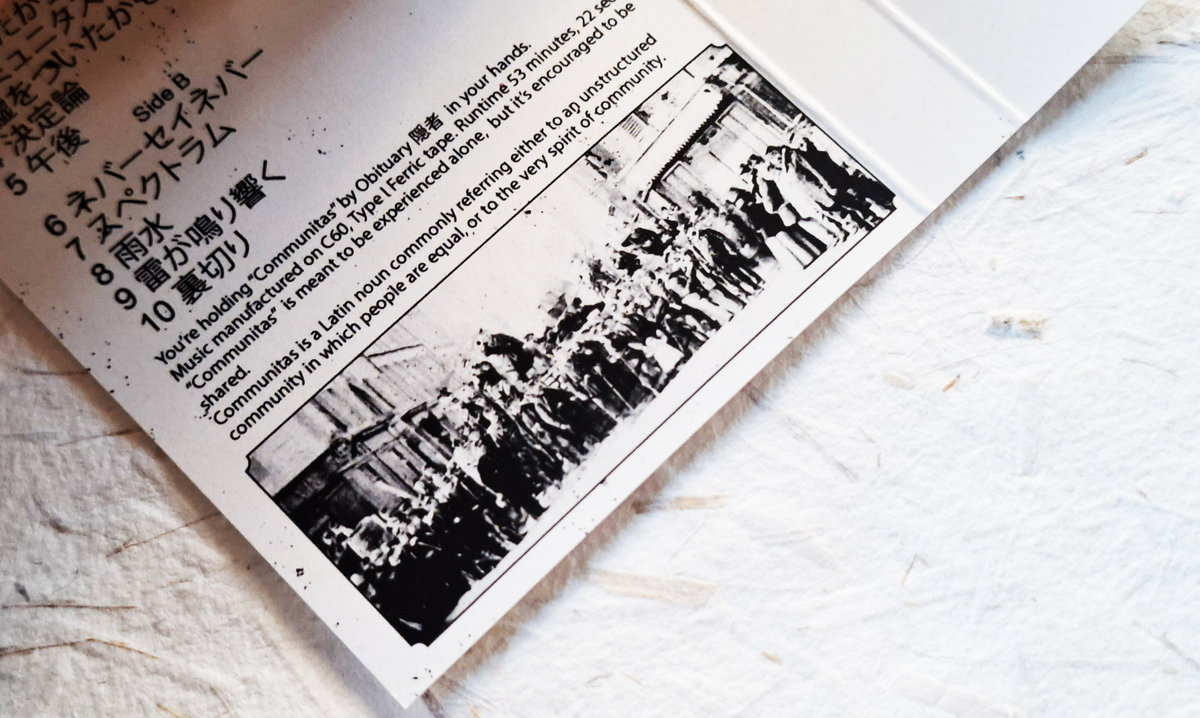 たか
ュニタス
嘘をついたから
4 決定論
5 午後
Side B
6 ネバーセイネバー
7 スペクトラム
8 雨水
9 雷が鳴り響く
10 裏切り
You're holding "Communitas" by Obituary 隠者 in your hands.
Music manufactured on C60, Type I Ferric tape. Runtime 53 minutes, 22 sec
"Communitas" is meant to be experienced alone, but it's encouraged to be
shared.
Communitas is a Latin noun commonly referring either to an unstructured
community in which people are equal, or to the very spirit of community.